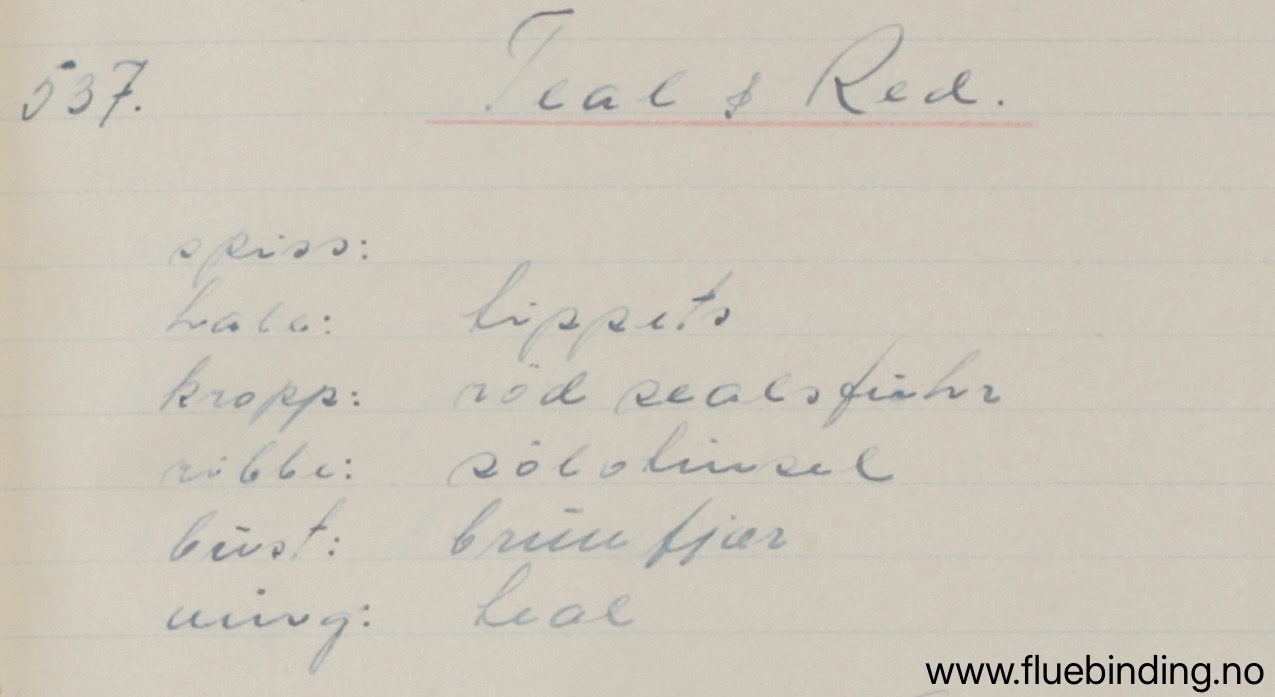 537. Teal & Red.
spiss:
hale: tippets
kropp: röd sealsfuhr
ribbe: sölvtinsel
bust: brun fjær
ving: teal
www.fluebinding.no